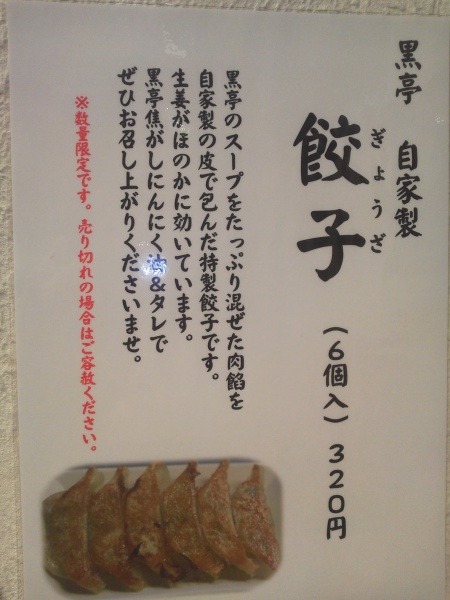 黒亭 自家製
ぎょうざ
餃子 (6個入) 320円
黒亭のスープをたっぷり混ぜた肉餡を
自家製の皮で包んだ特製餃子です。
生姜がほのかに効いています。
黒亭焦がしにんにく油&タレで
ぜひお召し上がりくださいませ。
※数量限定です。売り切れの場合はご容赦ください。